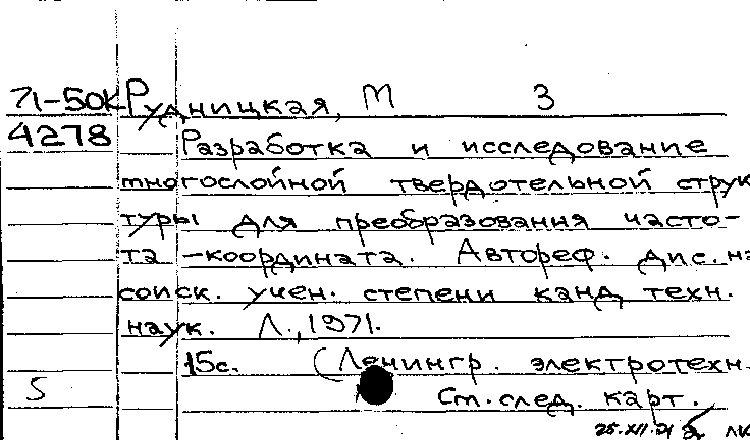 71-50К Рудницкая, М З
4278 Разработка и исследование
многослойной твердотельной струк
туры для преобразования часто-
та -координата. Автореф. дис. на
соиск. учен. степени канд техн.
наук. Л., 1971.
15с. (Ленингр. электротехн.
5 См. след. карт.
25.XII.71